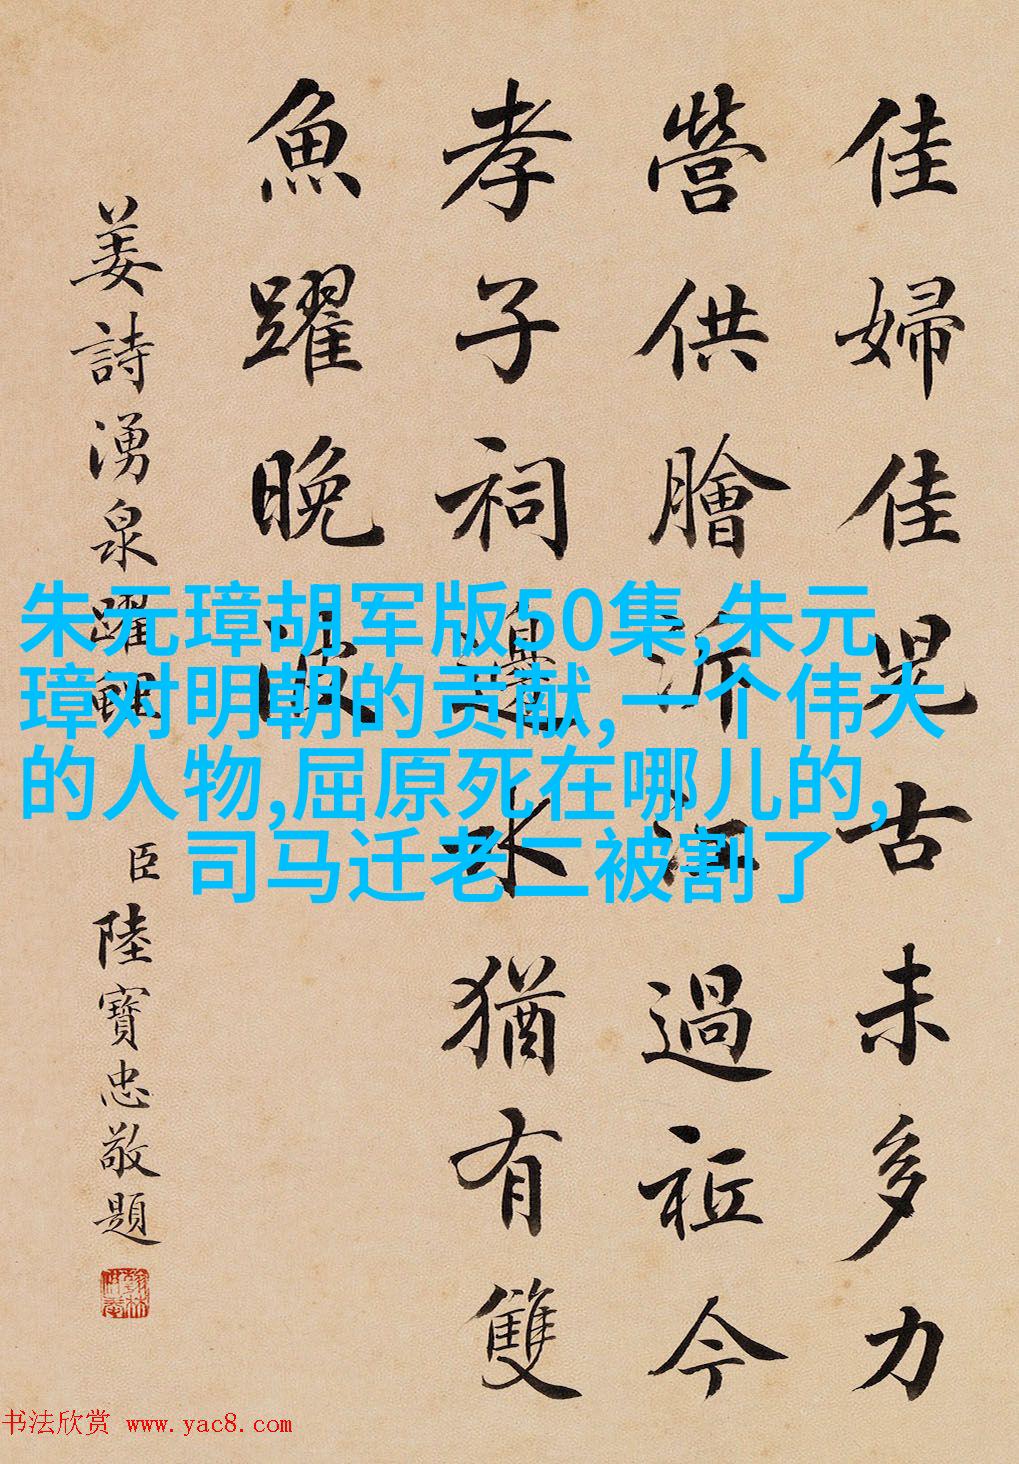 佳婦佳兒古未多力
營供膾泝江過祗今
孝子祠邊水猶有雙
魚躍晚波
姜詩湧泉躍鯉
臣陸寶忠敬題
朱元璋胡军版50集,朱元
璋对明朝的贡献,一个伟大
的人物,屈原死在哪儿的,
司马迁老二被割了
书法欣赏 www.yac8.com